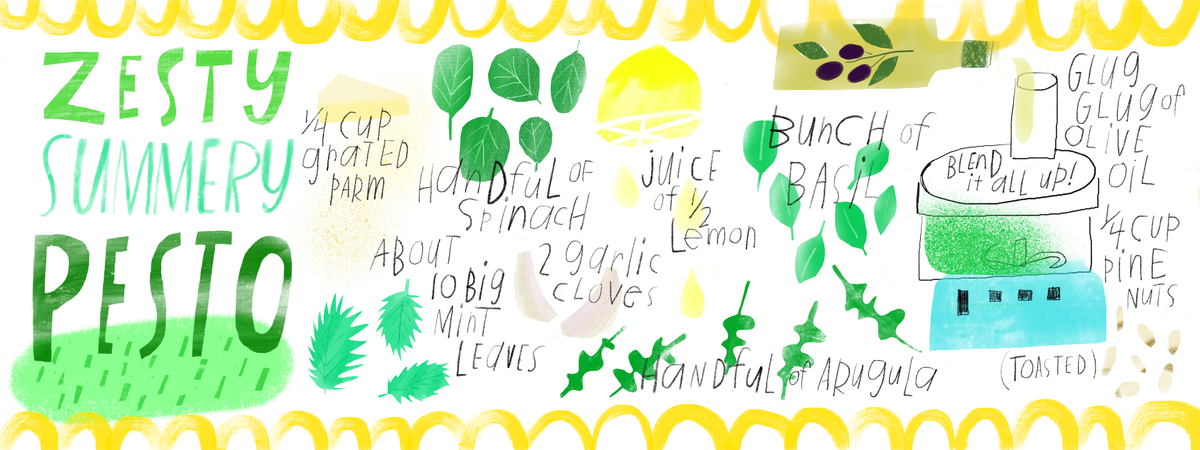 ZESTY
SUMMERY
PESTO
1/4 CUP
gRATED
PARM
HANDfUL OF
SPinACH
ABOUT
10 Big
MinT
LEAVES
2 garlic
CLOVES
JUiCE
of 1/2
LEmon
BUnCH of
BASiL
HANDfUL of ARUgULA
BLEnD
it all UP!
GLUg
GLUg of
OLiVE
OiL
1/4 CUP
PinE
NUTS
(TOASTED)